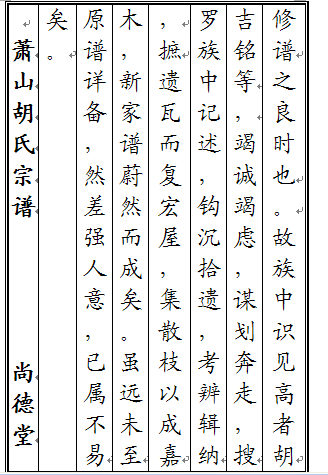 修谱之良时也。故族中识见高者胡
吉铭等，竭诚竭虑，谋划奔走，搜
罗族中记述，钩沉拾遗，考辨辑纳
，摭遗瓦而复宏屋，集散枝以成嘉
木，新家谱蔚然而成矣。虽远未至
原谱详备，然差强人意，已属不易
矣。
萧山胡氏宗谱 尚德堂